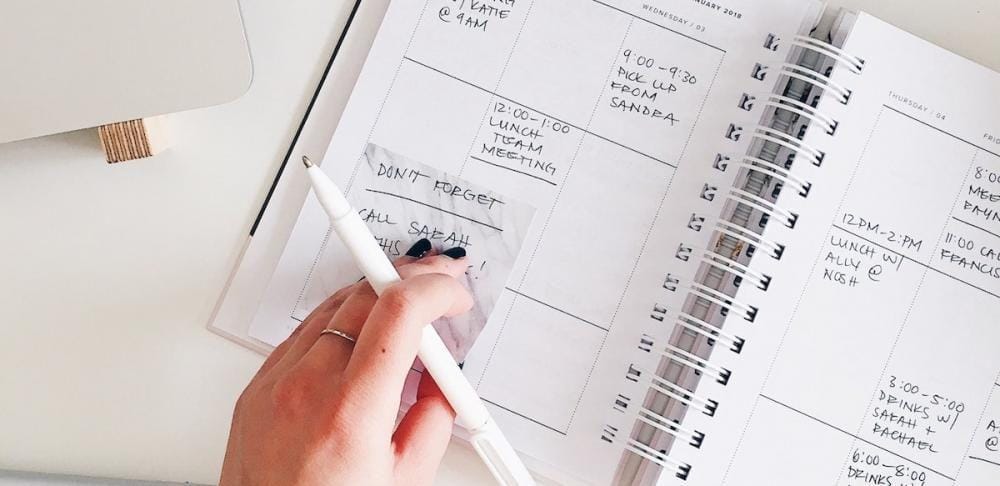 W/ KATIE
@ 9AM
JANUARY 2018
WEDNESDAY / 03
9:00-9:30
PICK UP
FROM
SANDRA
12:00-1:00
LUNCH
TEAM
MEETING
DON'T FORGET
CALL SARAH
THIS
THURSDAY / 04
12PM-2PM
LUNCH W/
ALLY @
NOSH
3:00-5:00
DRINKS W/
SARAH +
RACHAEL
6:00-8:00
DRINKS W/
11:00